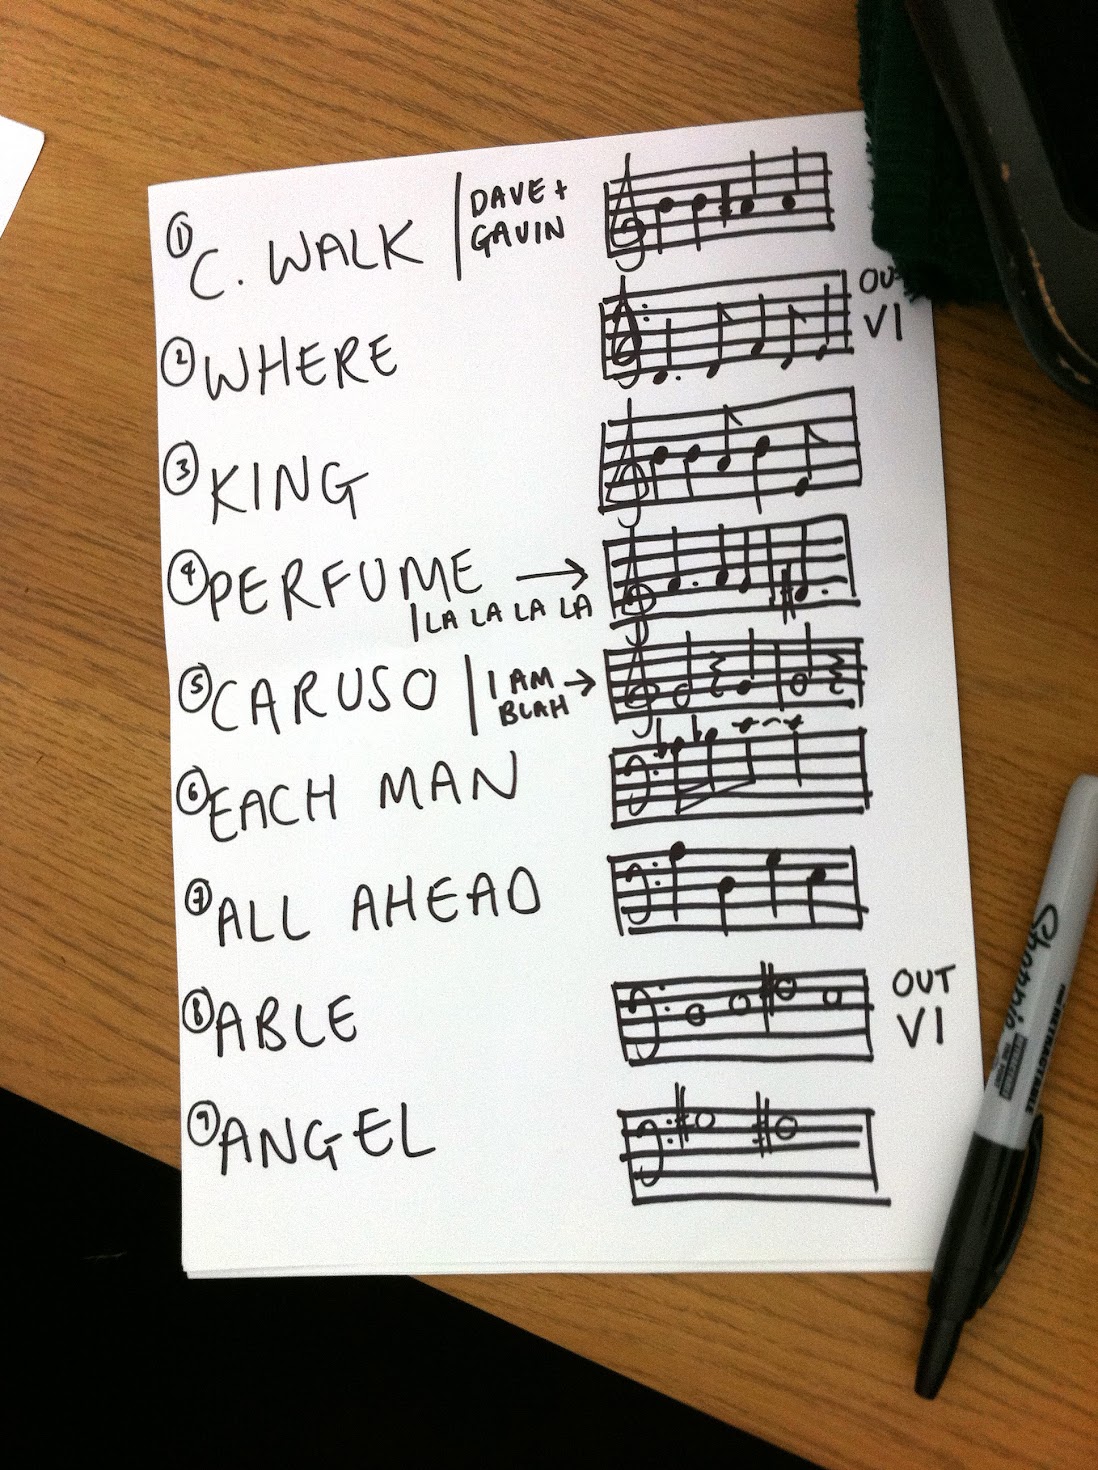 ① C. WALK | DAVE +
GAVIN
② WHERE
OU
VI
③ KING
④ PERFUME →
| LA LA LA LA
⑤ CARUSO | I AM →
BLAH
⑥ EACH MAN
⑦ ALL AHEAD
⑧ ABLE
OUT
VI
⑨ ANGEL
Sharpie
RETRACTABLE